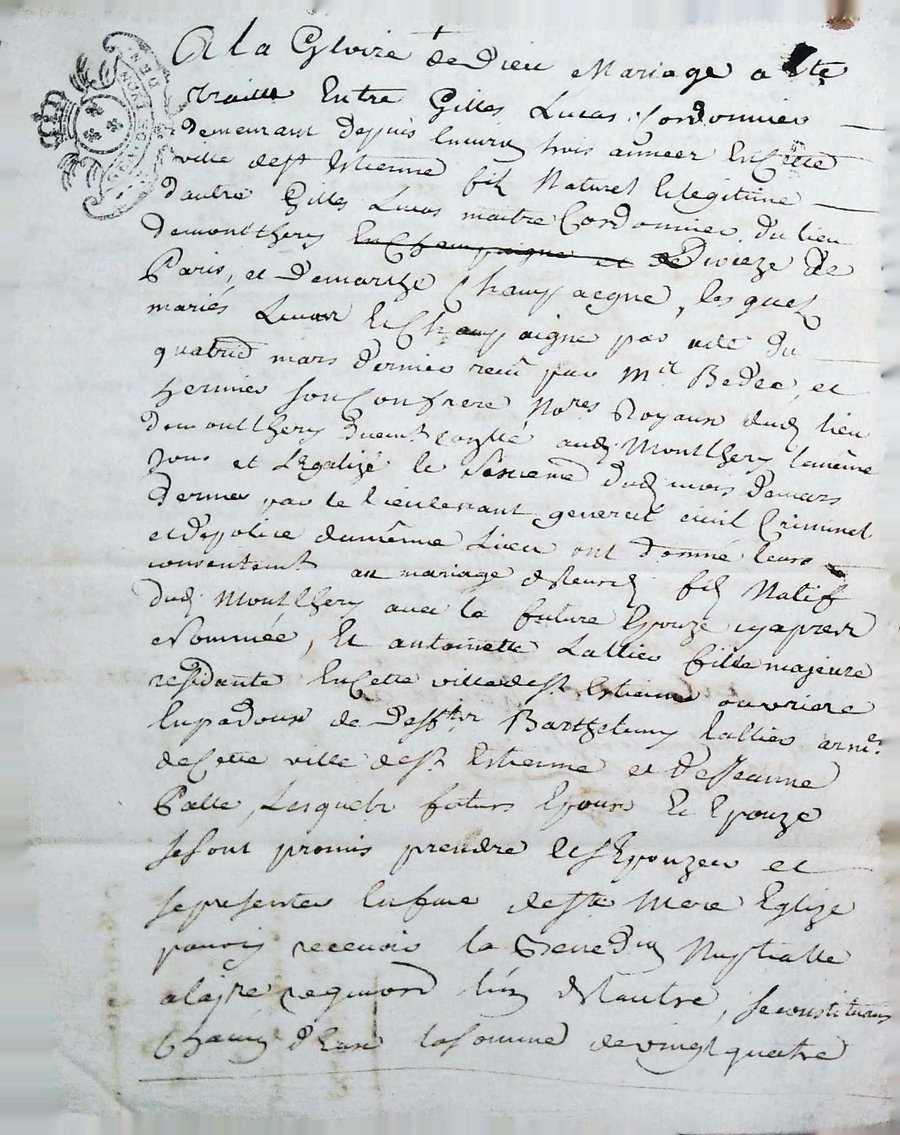 A la Gloire de Dieu Mariage a Ete
traitté Entre Gilles Lucas Cordonnier
demeurant depuis Environ trois années En Cette
ville de st Estienne fils Naturel & legitime
d'autre Gilles Lucas maitre Cordonnier du lieu
demonthery En Champaigne et de Dioceze de
Paris, et de Champaegne, lesquels
mariés Lucas & Champaigne par acte du
mars dernier receu par Mre Bedee, et
hernier son Confrere Nores Royaux dud lieu
demontlhery duemt Conllé aud Montlhery lemême
jour et Légalizé le dud mois demars
dernier par le lieutenant general civil Criminel
et depolice dumême Lieu ont donné leurs
consentemt au mariage fils Natif
dud Montlhery avec la future Epouze cyaprès
Nommée, Et antoinette Lallier fille majeure
residante En Cette ville de st Estienne ouvriere
En padoux de deffts Barthelemy Lallier
de Cette ville de st Estienne et de Jeanne
Palle, Lesquels futurs Epoux & Epouze
se sont promis prendre & s'Epouzer et
se presenter En face de ste Mere Eglize
pour y recevoir la Benedon Nuptialle
ala pre requisition l'un de l'autre, se constituans
Chacun d'Eux la somme de vingt quatre